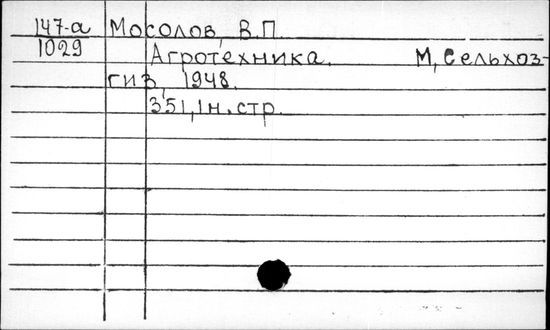 147-а Мосолов, В.П.
1029 Агротехника. М, Сельхоз-
гиз, 1948.
351, 1 н. стр.